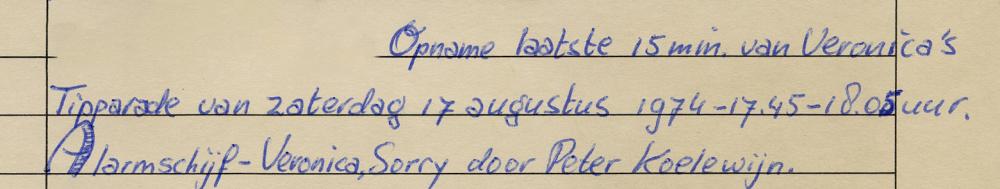 Opname laatste 15 min. van Veronica's
Tipparade van zaterdag 17 augustus 1974-17.45-18.05 uur.
Alarmschijf-Veronica, Sorry door Peter Koelewijn.